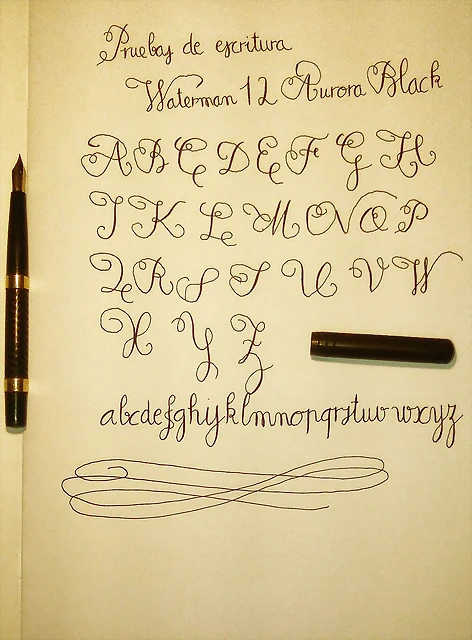 Pruebas de escritura
Waterman 12 Aurora Black
A B C D E F G H
J K L M N O P
Q R S T U V W
X Y Z
abcdefghijklmnopqrstuvwxyz